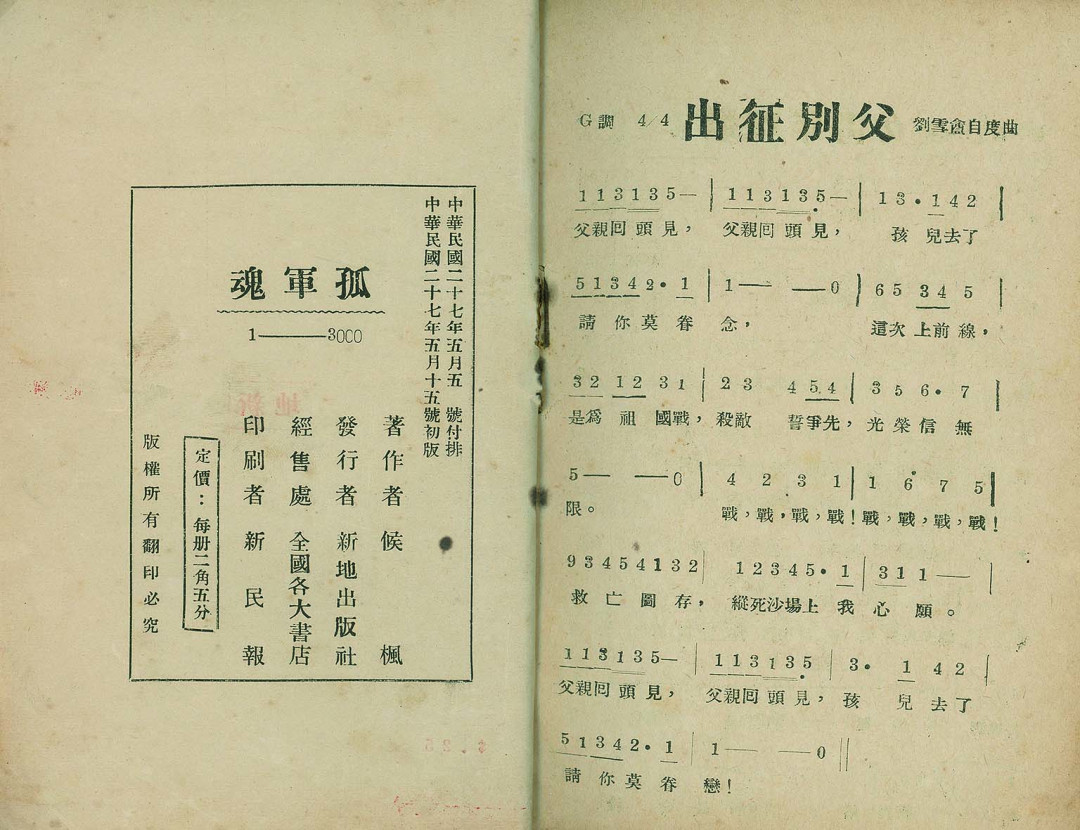 中華民國二十七年五月五 號付排
中華民國二十七年五月十五號初版
孤軍魂
1———3000
著作者 候楓
發行者 新地出版社
經售處 全國各大書店
印刷者 新民報
定價：每册二角五分
版權所有翻印必究
G調 4/4 出征別父 劉雪盦自度曲
1 1 3 1 3 5 — | 1 1 3 1 3 5 — | 1 3 • 1 4 2 |
父親囘頭見， 父親囘頭見， 孩兒去了
5 1 3 4 2 • 1 | 1 — — — 0 | 6 5 3 4 5 |
請你莫眷念， 這次上前線，
3 2 1 2 3 1 | 2 3 4 5 4 | 3 5 6 • 7
是爲祖國戰，殺敵 誓爭先，光榮信無
5 — — — 0 | 4 2 3 1 | 1 6 7 5 |
限。 戰，戰，戰，戰！戰，戰，戰，戰！
9 3 4 5 4 1 3 2 | 1 2 3 4 5 • 1 | 3 1 1 — — |
救亡圖存，縱死沙場上我心願。
1 1 3 1 3 5 — | 1 1 3 1 3 5 | 3 • 1 4 2 |
父親囘頭見， 父親囘頭見，孩兒去了
5 1 3 4 2 • 1 | 1 — — — 0 ||
請你莫眷戀！